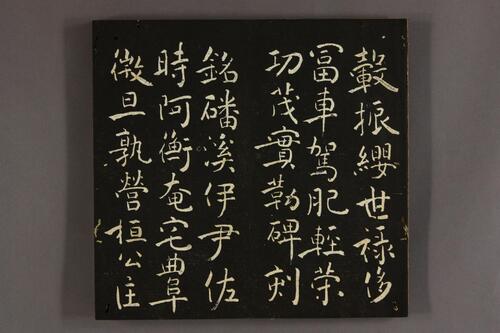 轂振纓世祿侈
冨車駕肥輕策
功茂實勒碑刻
銘磻溪伊尹佐
時阿衡奄宅曲阜
微旦孰營桓公匡